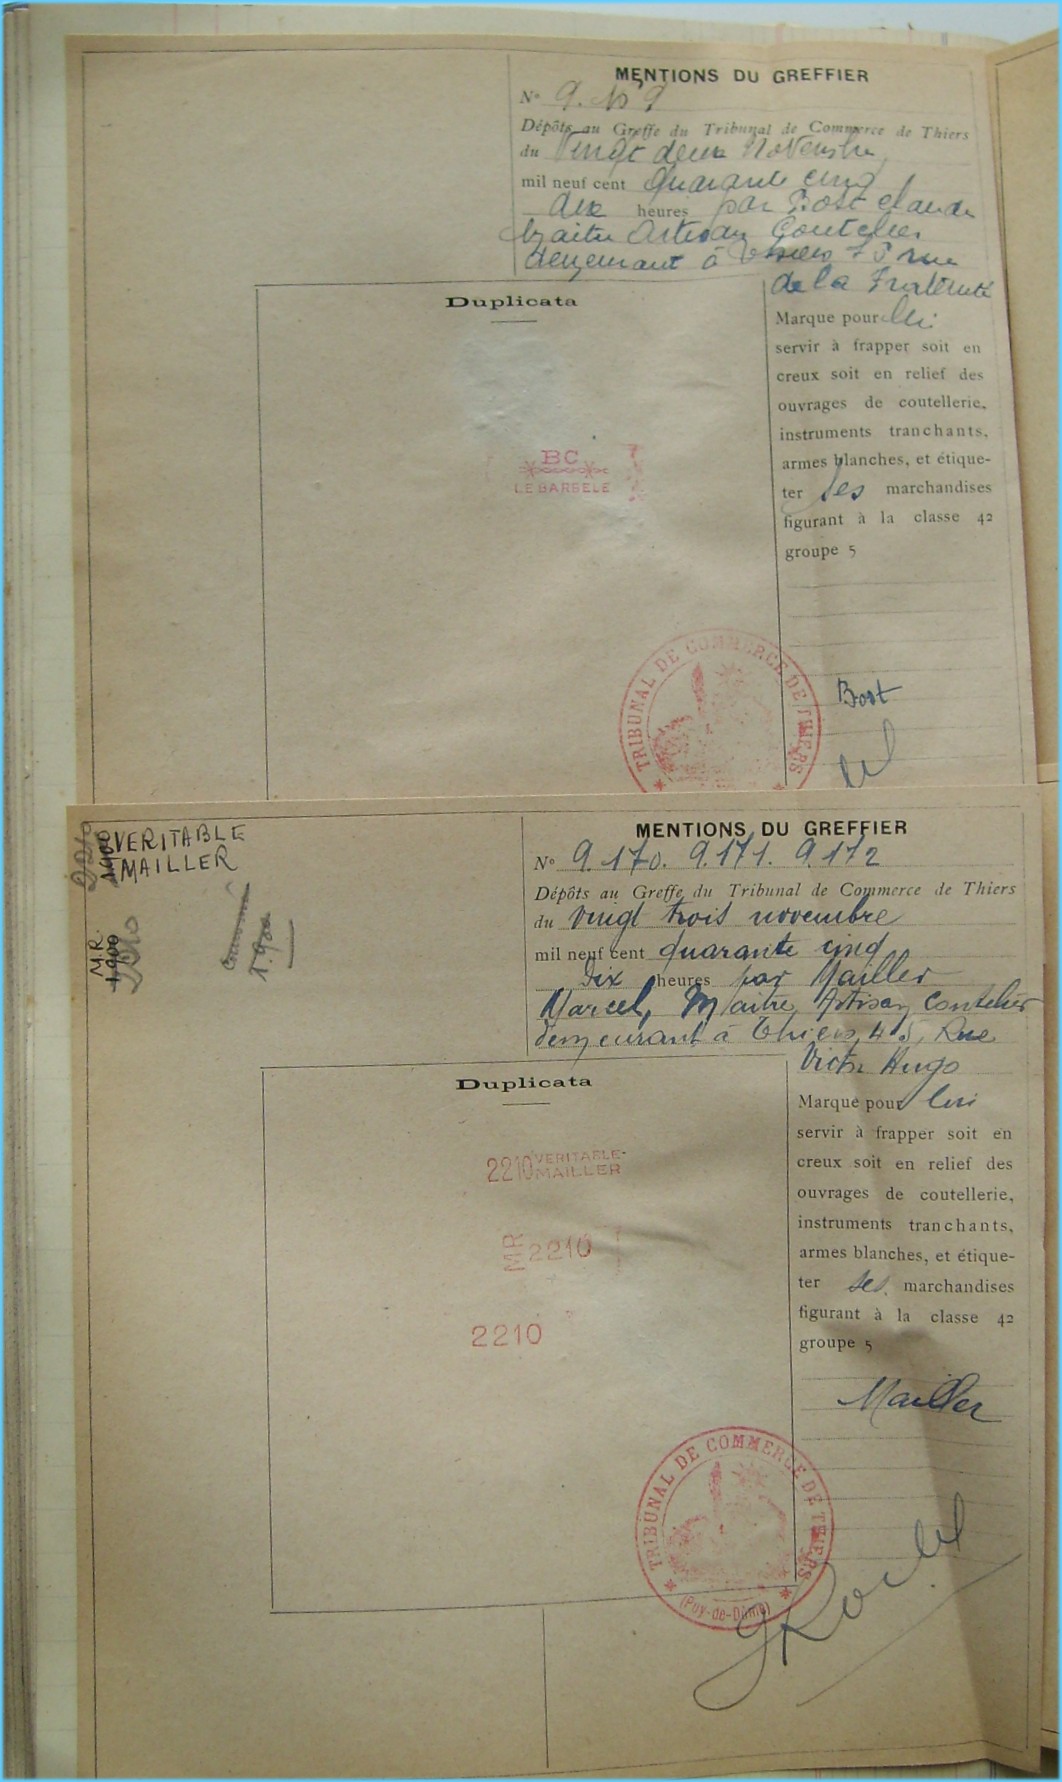 MENTIONS DU GREFFIER
N°
Dépôts au Greffe du Tribunal de Commerce de Thiers
du Vingt deux Novembre
mil neuf cent quarante cinq
dix heures par Bost Claude
Maitre Artisan Coutelier
demeurant à Thiers rue
de la Fraternité
Duplicata
Marque pour lui
servir à frapper soit en
creux soit en relief des
ouvrages de coutellerie,
instruments tranchants,
armes blanches, et étique-
ter ses marchandises
figurant à la classe 42
groupe 5
BC
LE BARBELE
TRIBUNAL DE COMMERCE DE THIERS
Bost
2210 VERITABLE
MAILLER
M.R.
1900
2210
1.900
MENTIONS DU GREFFIER
N° 9.170. 9.171. 9.172
Dépôts au Greffe du Tribunal de Commerce de Thiers
du Vingt trois novembre
mil neuf cent quarante cinq
Dix heures par Mailler
Marcel, Maitre Artisan Coutelier
demeurant à Thiers, 45, Rue
Victor Hugo
Duplicata
Marque pour lui
servir à frapper soit en
creux soit en relief des
ouvrages de coutellerie,
instruments tranchants,
armes blanches, et étique-
ter ses marchandises
figurant à la classe 42
groupe 5
2210 VERITABLE-
MAILLER
MR 2210
2210
Mailler
TRIBUNAL DE COMMERCE DE THIERS
(Puy-de-Dôme)